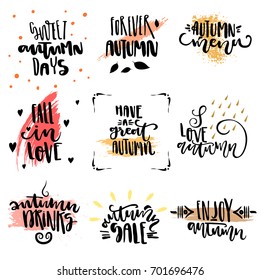 SWEET
autumn
DAYS
FOREVER
AUTUMN
AUTUMN
menu
FALL
in
LOVE
HAVE
A
great
AUTUMN
I
LOVE
autumn
autumn
DRINKS
autumn
SALE
ENJOY
autumn
shutterstock.com · 701696476